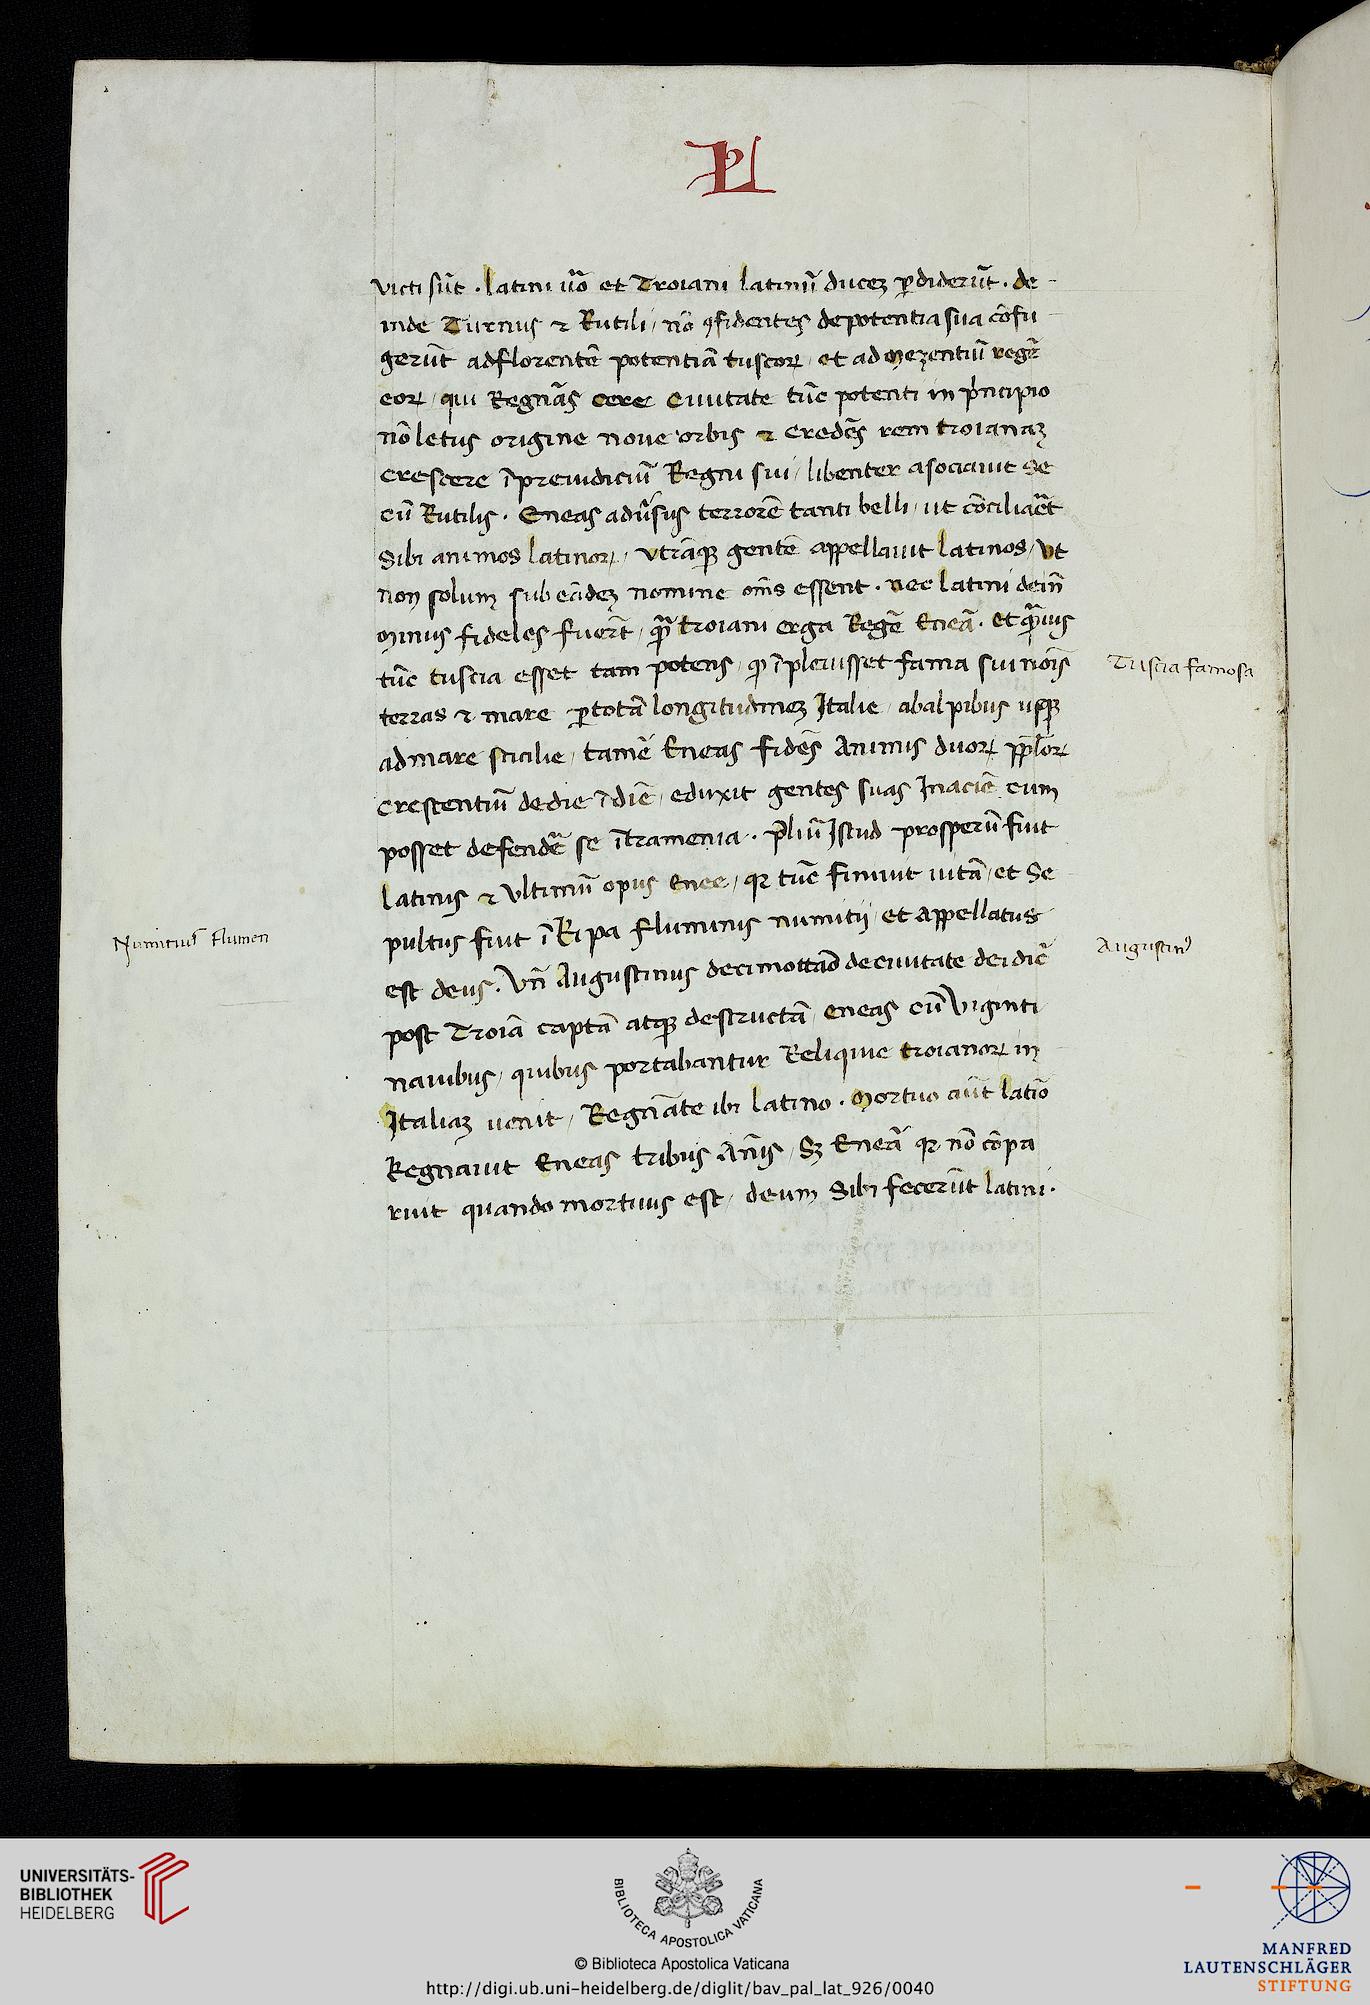 PL
victi sūt . latini ūo et Troiani latinū ducez ꝑdiderūt . de
inde Turnus ⁊ Rutili / nō ꝯfidentes de potentia sua cōfu
gerūt ad florentē potentiā tuscoꝝ / et ad mezentiū regē
eoꝝ / qui Regnās cere Ciuitate tūc potenti in pͥncipio
nō letus origine noue orbis ⁊ credēs rem troianaz
crescere ī preiudiciū Regni sui / libenter asociauit se
cū Rutilis . Eneas adūsus terrorē tanti belli / ut cōciliaēt
sibi animos latinoꝝ / vtrāqꝫ gentē appellauit latinos / vt
non solum sub eādez nomine om̄s essent . nec latini dein̄
minus fideles fuerūt / qͣ̄ troiani erga Regē Eneā . et qͣ̄uis
tūc tuscia esset tam potens / qꝫ īpleuisset fama sui noīs
terras ⁊ mare ꝑ totā longitudinez Italie / ab alpibus usqꝫ
ad mare scicilie / tamē Eneas fidēs Animis duoꝝ pploꝝ
crescentiū de die ī diē / eduxit gentes suas In aciē cum
posset defendē se ītra menia . p̄liū Istud prosperū fuit
latinis ⁊ vltimū opus Enee / qꝛ tūc finiuit uitā / et se
pultus fuit ī Ripa fluminis numitij / et appellatus
est deus . Vn̄ Augustinus decimottāo de ciuitate dei dic̄
post Troiā captā atqꝫ destructā / eneas cū Viginti
nauibus / quibus portabantur Reliquie troianoꝝ in
Italiaz uenit / Regnāte ibi latino . mortuo aūt latīo
Regnauit Eneas tribus An̄is / Sꝫ Eneā qꝛ nō cōpa
ruit quando mortuus est / deum sibi fecerūt latini .
Tuscia famosa
Numitius flumen
Augustinꝰ
UNIVERSITÄTS-
BIBLIOTHEK
HEIDELBERG
BIBLIOTECA APOSTOLICA VATICANA
© Biblioteca Apostolica Vaticana
http://digi.ub.uni-heidelberg.de/diglit/bav_pal_lat_926/0040
MANFRED
LAUTENSCHLÄGER
STIFTUNG